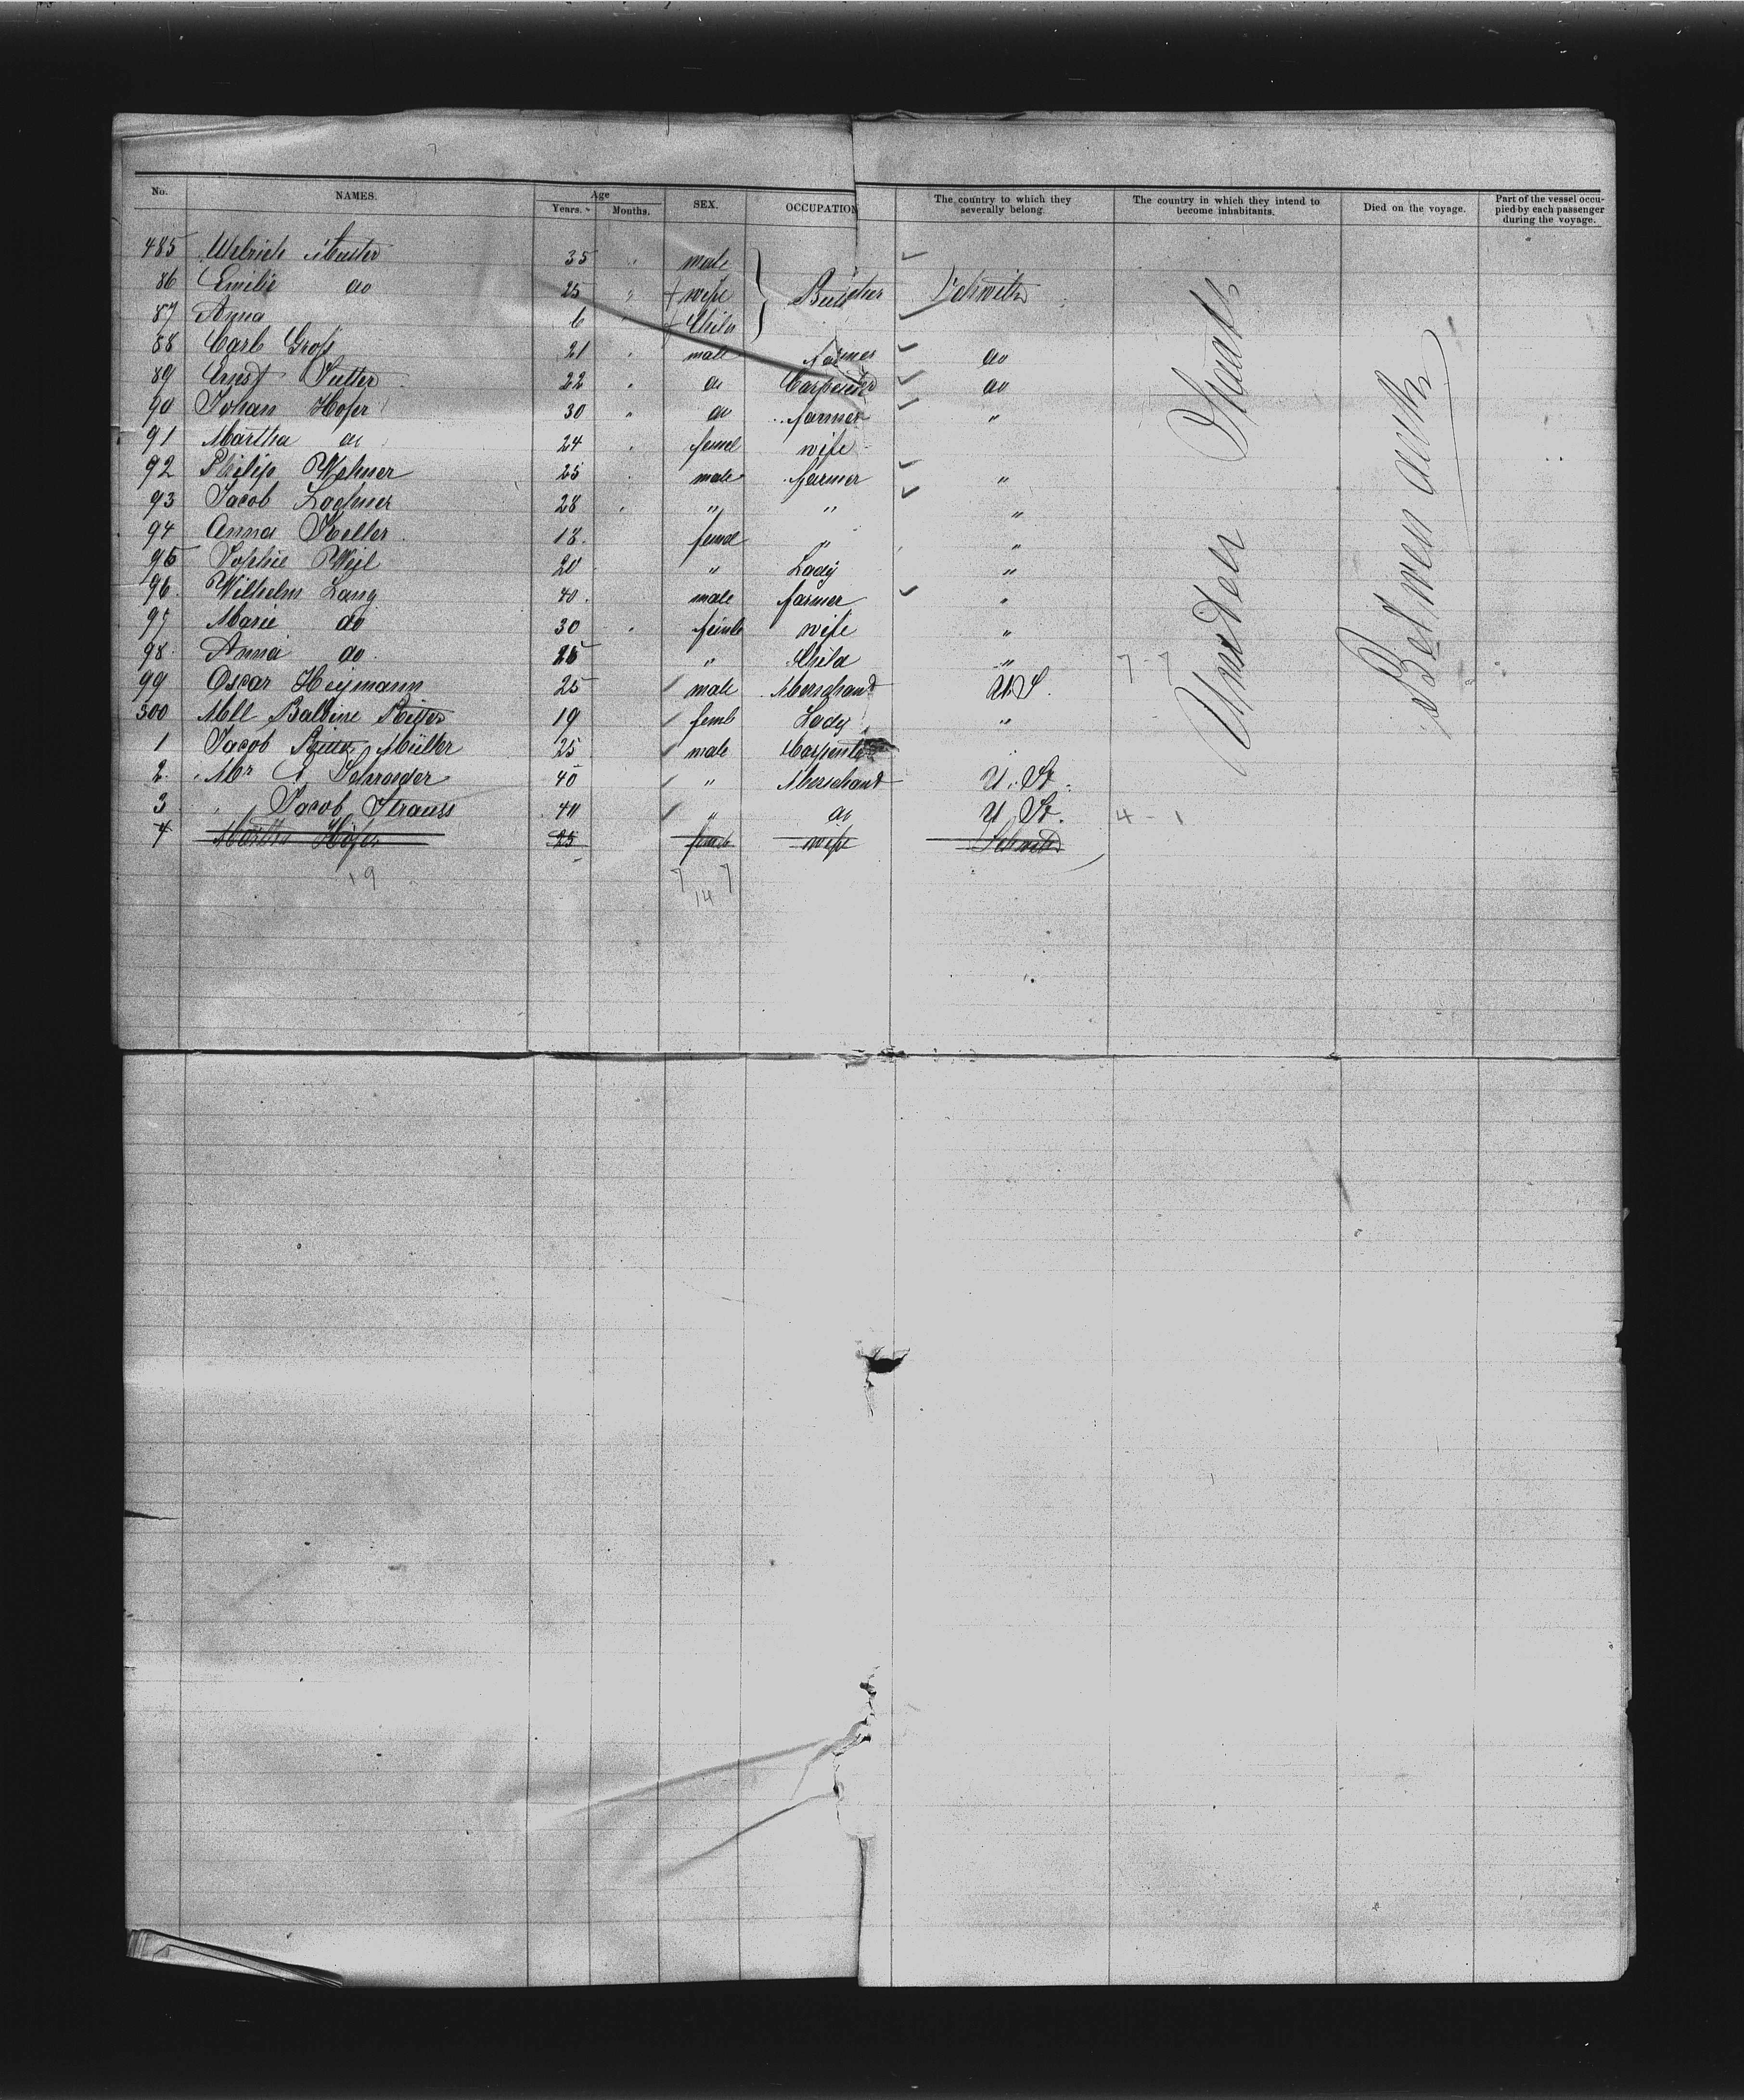 No. NAMES. Age Years. Months. SEX. OCCUPATION The country to which they severally belong. The country in which they intend to become inhabitants. Died on the voyage. Part of the vessel occupied by each passenger during the voyage.
485 Ulrich 35 " male
86 Emilie do 25 " wife Butcher Schweitz
87 Anna 6 " Child
88 Carl Groß 21 " male Farmer do
89 Ernst Sutter 22 " do Carpenter do
90 Johan Hofer 30 " do farmer "
91 Martha do 24 " femel wife
92 Philip Wehner 25 " male farmer "
93 Jacob Lochner 28 " " " "
94 Anna Keller 18 femel " "
95 Sophie Weyl 20 " Lady "
96 Wilhelm Lang 40 male farmer "
97 Marie do 30 " femle wife "
98 Anna do 25 " Child "
99 Oscar Heymann 25 male Merschant U.S.
300 Mll Balbine Ritter 19 femle Lady "
1 Jacob Ritter Müller 25 male Carpenter
2 Mr A Schroeder 40 " Merschant U. St.
3 " Jacob Strauss 40 " do U St.
4 Martha Höfer 25 femle wife Schweitz
United Staats
Between decks
7-7
4-1
19
7 7
14